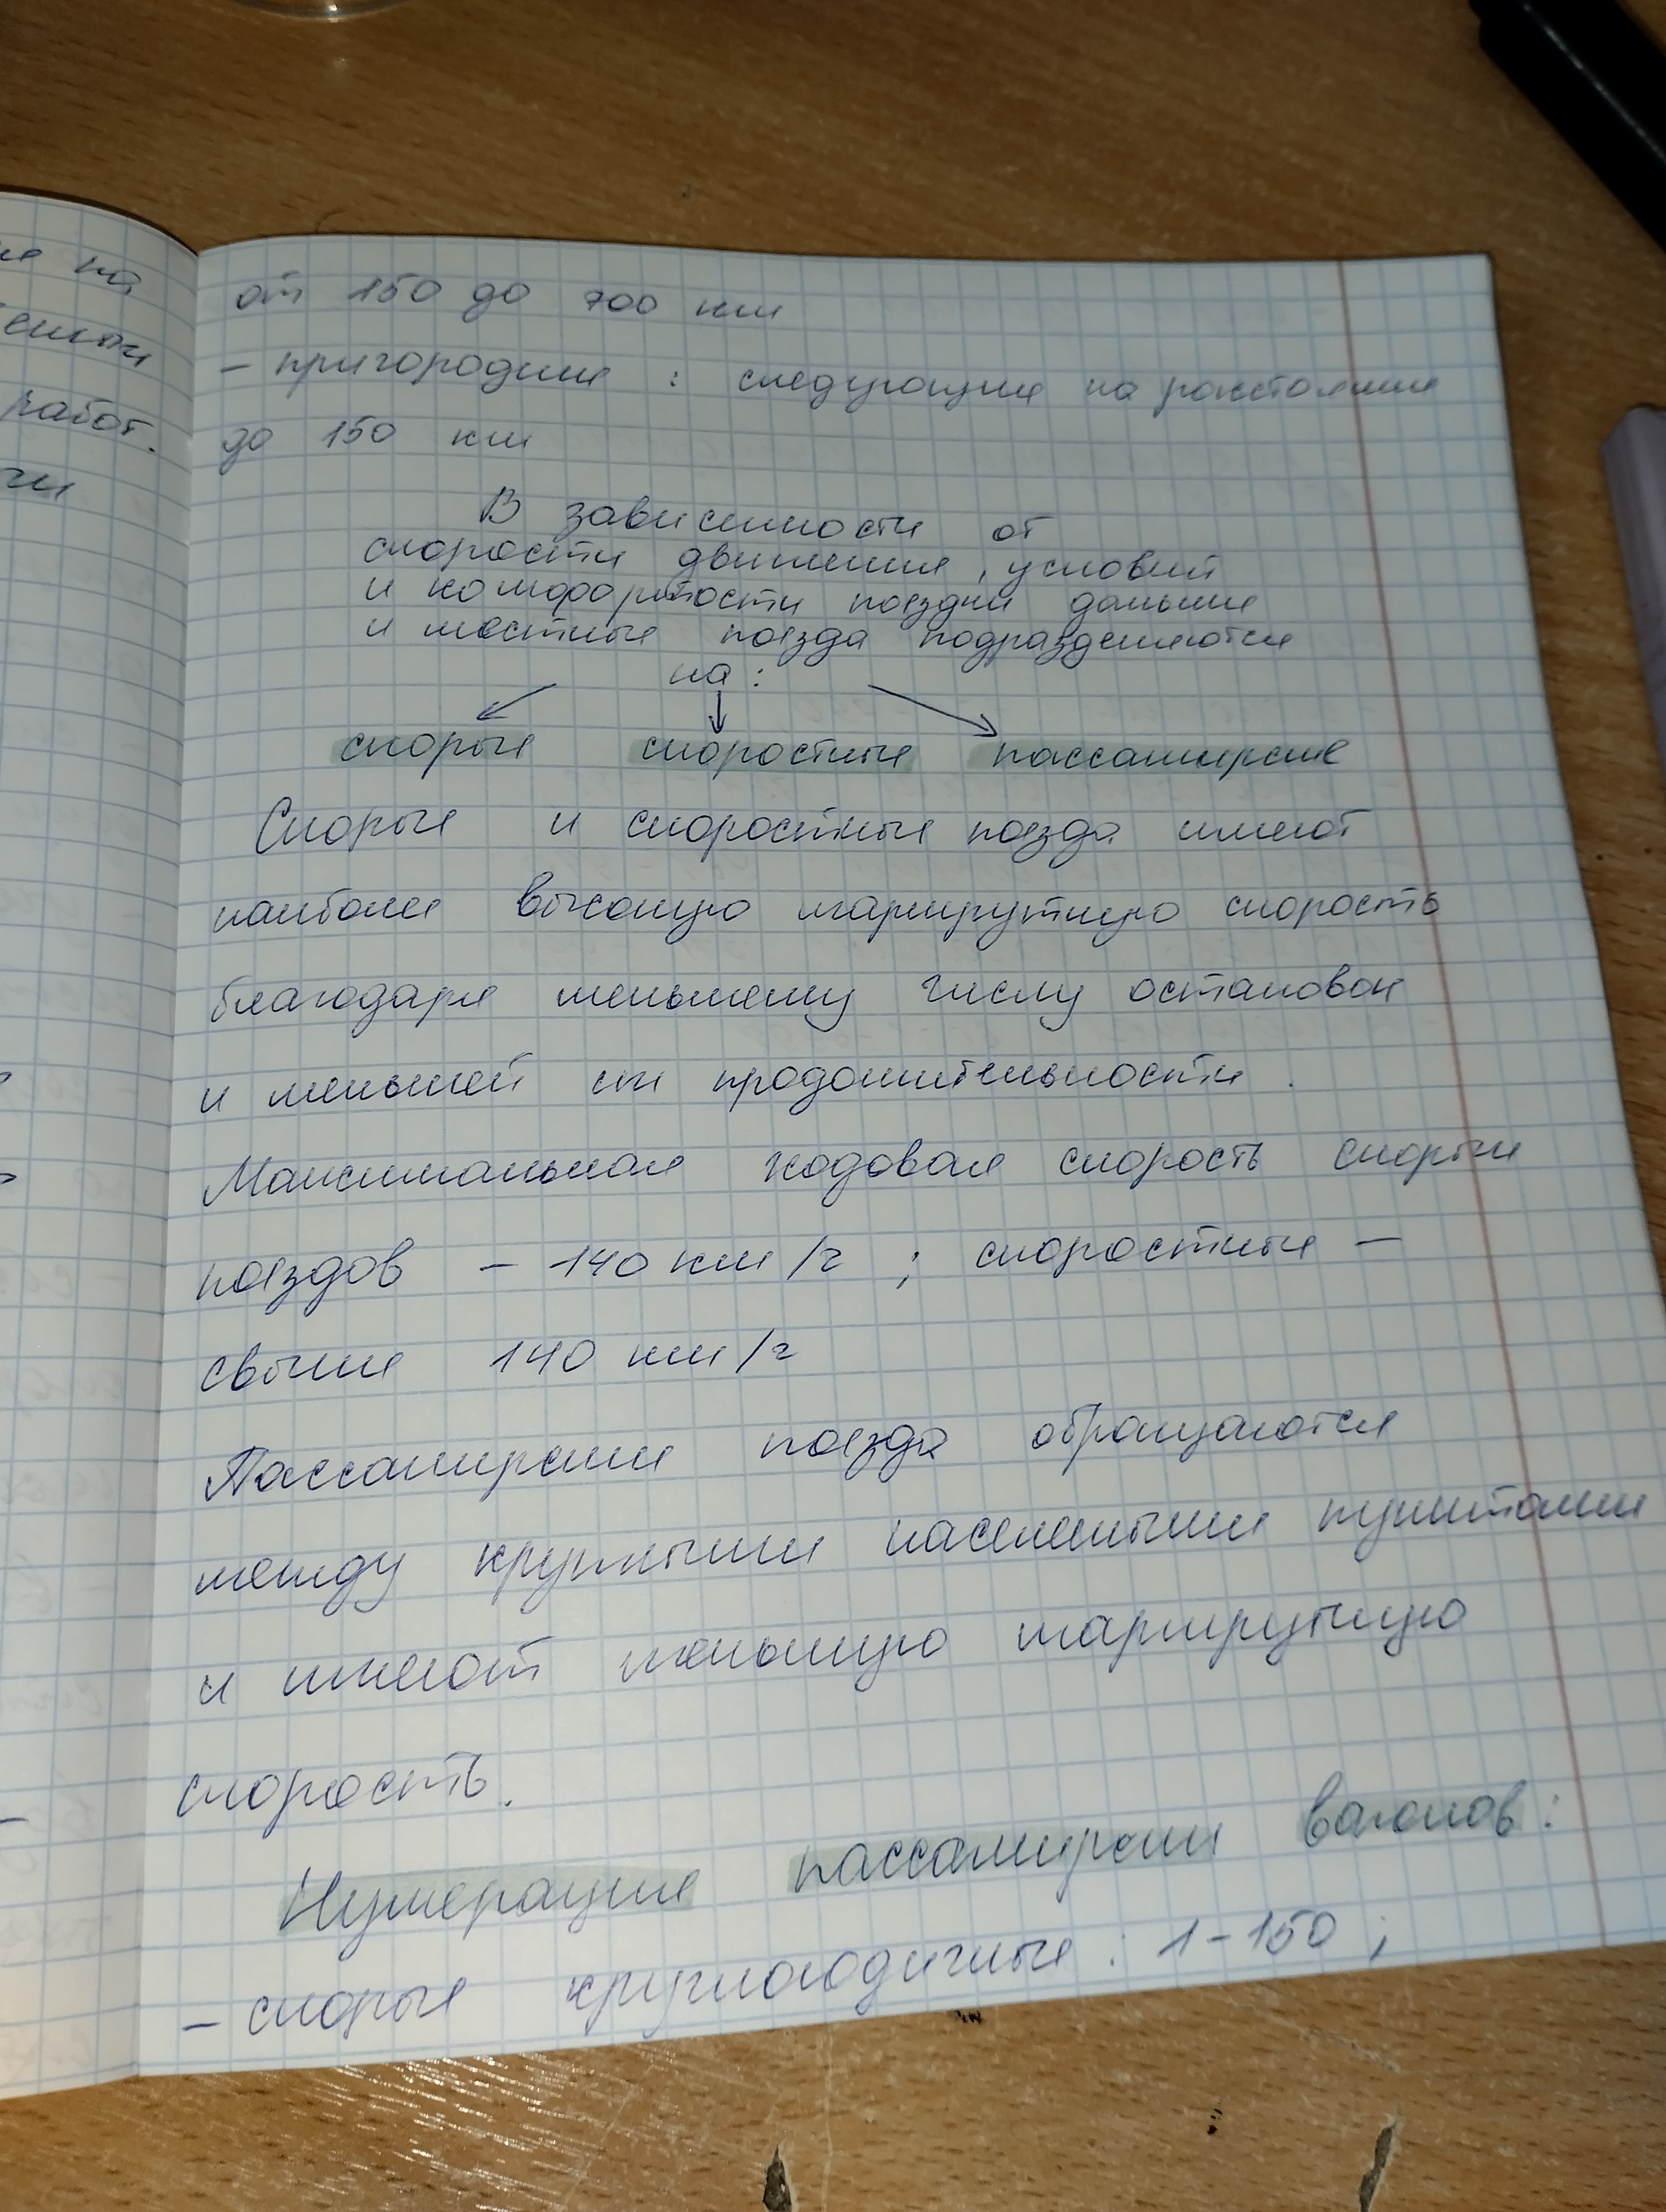 от 150 до 700 км
- пригородные : следующие на расстояние
до 150 км
В зависимости от
скорости движения, условий
и комфортности поездки дальние
и местные поезда подразделяются
на:
скорые скоростные пассажирские
Скорые и скоростные поезда имеют
наиболее высокую маршрутную скорость
благодаря меньшему числу остановок
и меньшей их продолжительности.
Максимальная ходовая скорость скорых
поездов - 140 км/ч ; скоростные -
свыше 140 км/ч
Пассажирские поезда обращаются
между крупными населенными пунктами
и имеют меньшую маршрутную
скорость.
Нумерация пассажирских вагонов:
- скорые круглогодичные : 1-150 ;
на
работ.